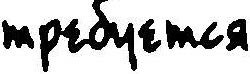 требуется